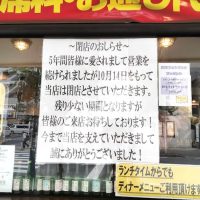 ～閉店のおしらせ～
5年間皆様に愛されまして営業を
続けられましたが10月14日をもって
当店は閉店とさせていただきます。
残り少ない期間となりますが
皆様のご来店お待ちしております！
今まで当店を支えていただきまして
誠にありがとうございました！
ランチタイムからでも
ディナーメニューご利用頂けます